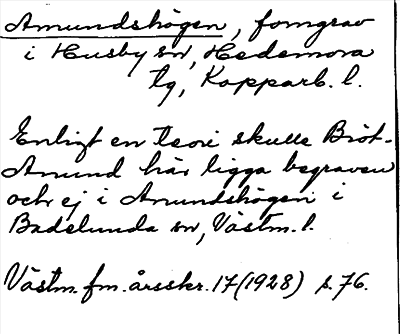 Amundshögen, forngrav
i Husby sn, Hedemora
tg, Kopparb. l.
Enligt en teori skulle Bröt-
Amund här ligga begraven
och ej i Amundshögen i
Badelunda sn, Västm. l.
Västm. fm. årsskr. 17 (1928) s. 76.